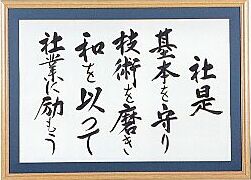 社是
基本を守り
技術を磨き
和を以って
社業に励もう